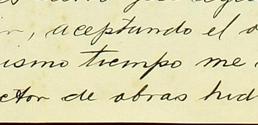 , aceptando el
ismo tiempo me
ctor de obras hid